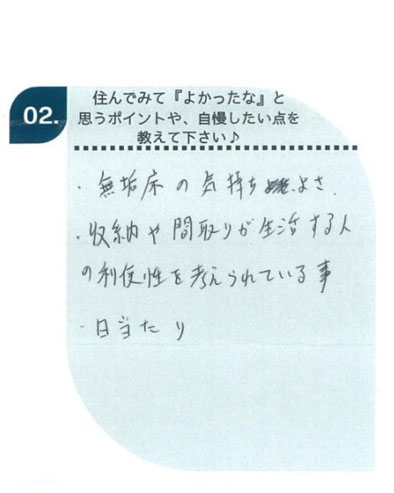 02.
住んでみて『よかったな』と
思うポイントや、自慢したい点を
教えて下さい♪
・無垢床の気持ちよさ.
・収納や間取りが生活する人
の利便性を考えられている事
・日当たり